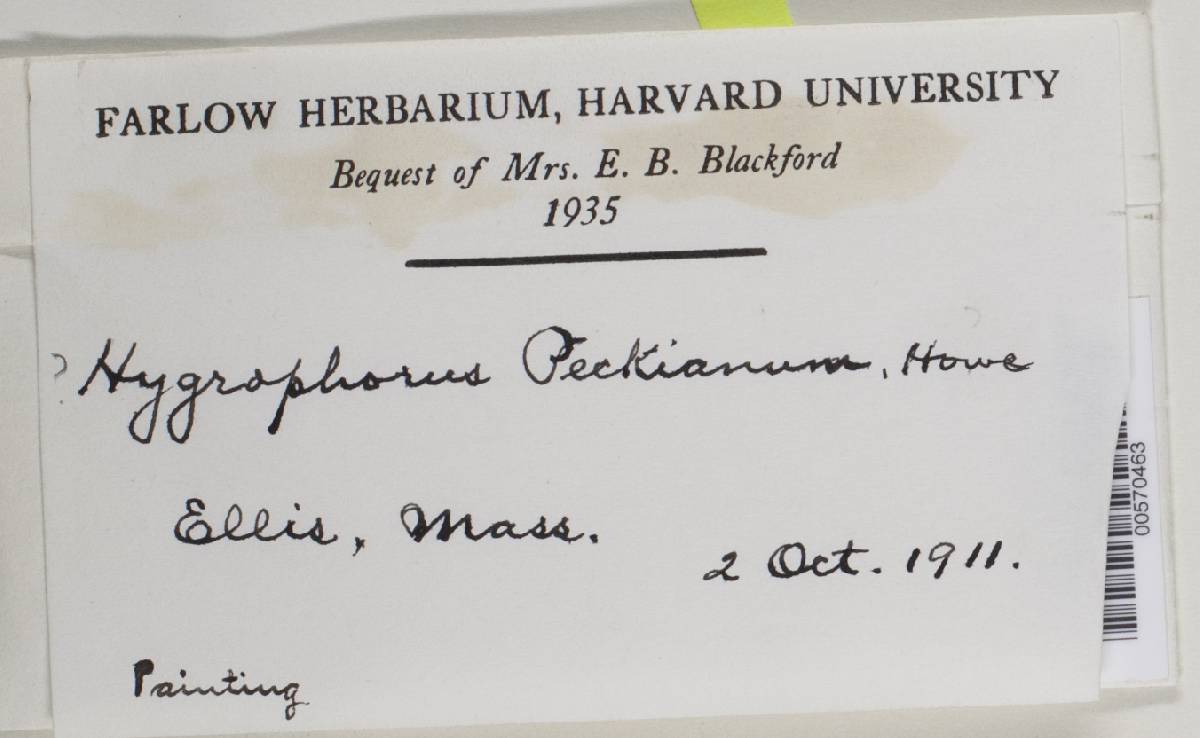 FARLOW HERBARIUM, HARVARD UNIVERSITY
Bequest of Mrs. E. B. Blackford
1935
? Hygrophorus Peckianum, Howe
Ellis, Mass.
2 Oct. 1911.
Painting
00570463